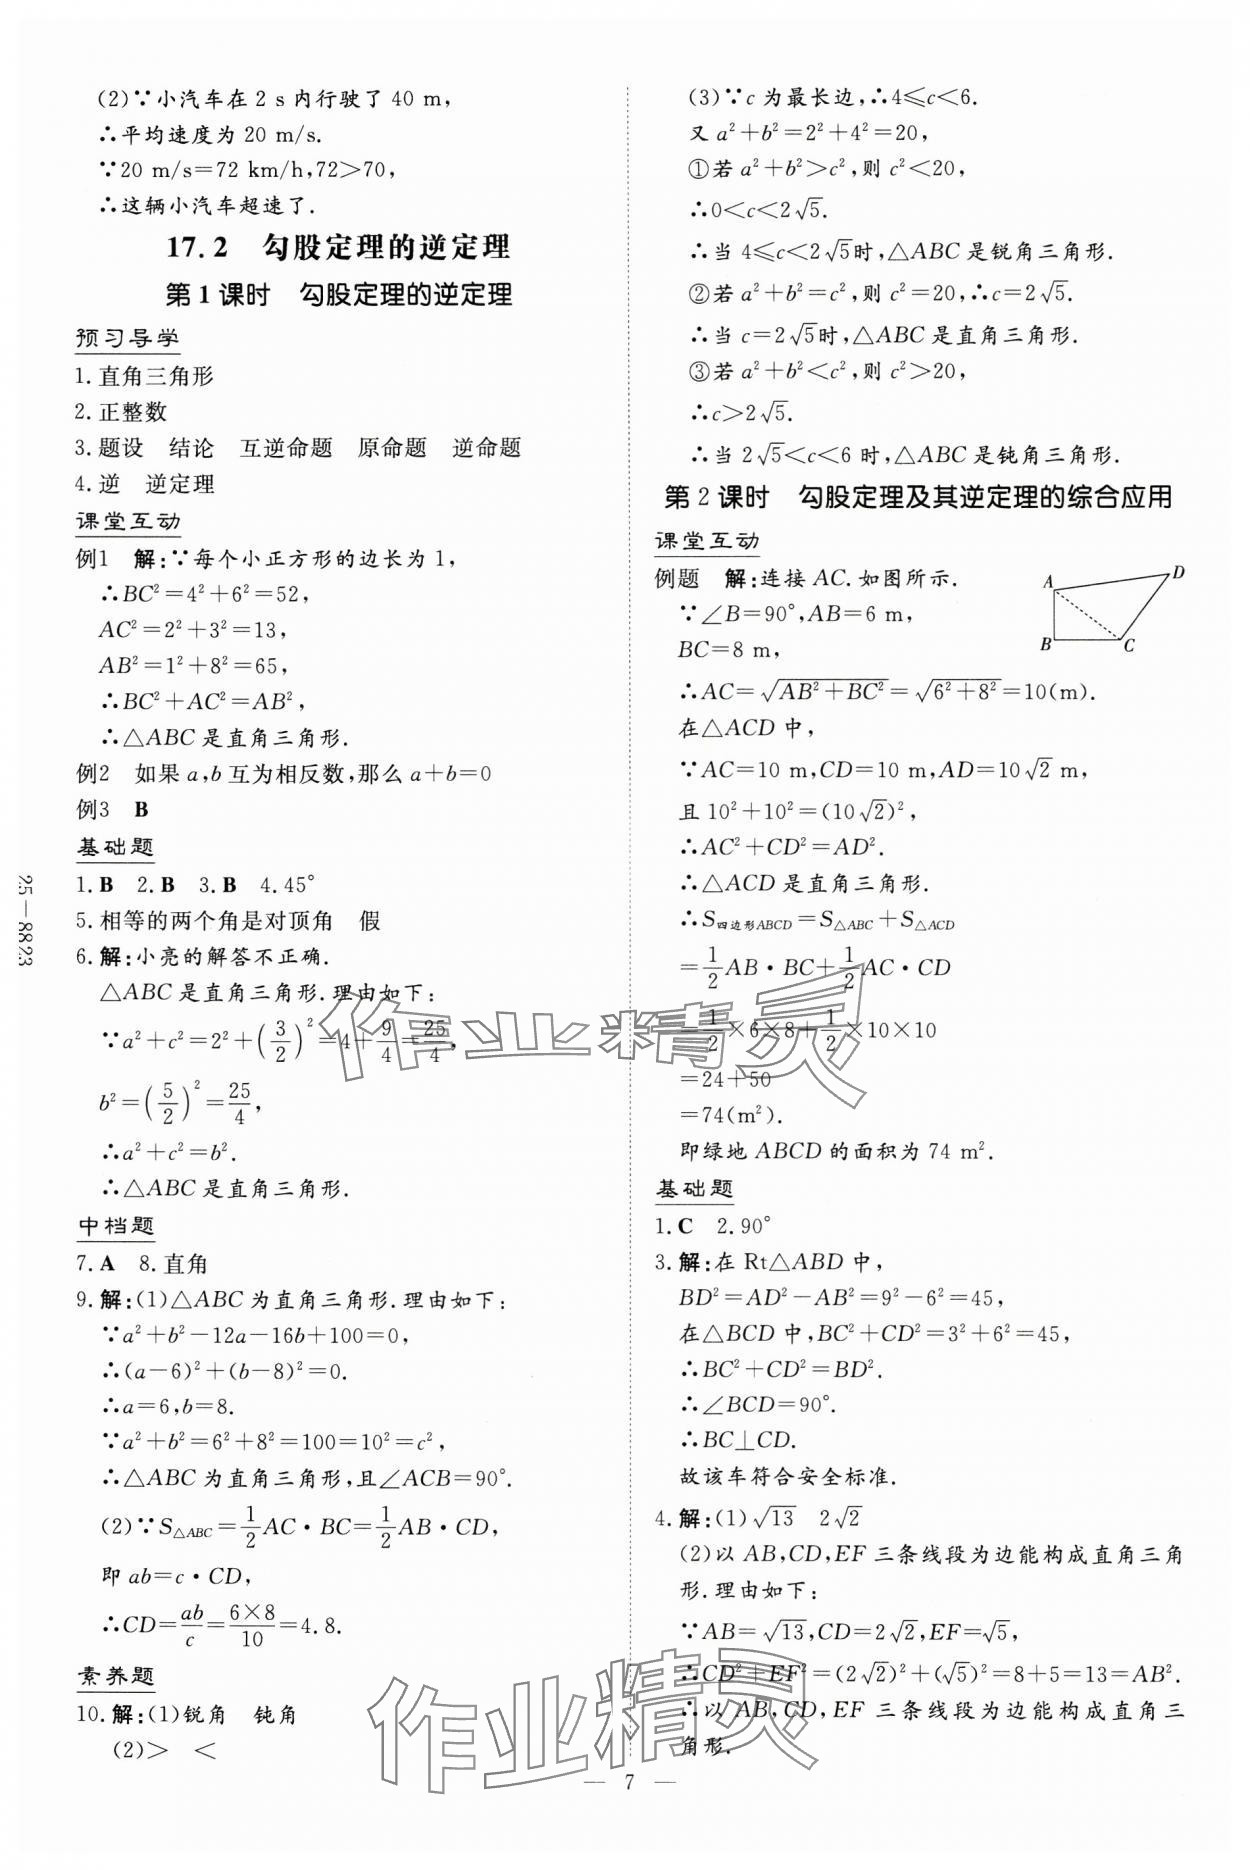 (2)∵小汽车在 2 s 内行驶了 40 m,
∴平均速度为 20 m/s.
∵20 m/s=72 km/h,72>70,
∴这辆小汽车超速了.
17.2 勾股定理的逆定理
第1课时 勾股定理的逆定理
预习导学
1.直角三角形
2.正整数
3.题设 结论 互逆命题 原命题 逆命题
4.逆 逆定理
课堂互动
例1 解:∵每个小正方形的边长为 1,
∴BC²=4²+6²=52,
AC²=2²+3²=13,
AB²=1²+8²=65,
∴BC²+AC²=AB²,
∴△ABC 是直角三角形.
例2 如果 a,b 互为相反数,那么 a+b=0
例3 B
基础题
1.B 2.B 3.B 4.45°
5.相等的两个角是对顶角 假
6.解:小亮的解答不正确.
△ABC 是直角三角形.理由如下:
∵a²+c²=2²+(3/2)²=4+9/4=25/4,
b²=(5/2)²=25/4,
∴a²+c²=b².
∴△ABC 是直角三角形.
中档题
7.A 8.直角
9.解:(1)△ABC 为直角三角形.理由如下:
∵a²+b²-12a-16b+100=0,
∴(a-6)²+(b-8)²=0.
∴a=6,b=8.
∵a²+b²=6²+8²=100=10²=c²,
∴△ABC 为直角三角形,且∠ACB=90°.
(2)∵S△ABC=1/2 AC·BC=1/2 AB·CD,
即 ab=c·CD,
∴CD=ab/c=6×8/10=4.8.
素养题
10.解:(1)锐角 钝角
(2)> <
(3)∵c 为最长边,∴4≤c<6.
又 a²+b²=2²+4²=20,
①若 a²+b²>c²,则 c²<20,
∴0<c<2√5.
∴当 4≤c<2√5时,△ABC 是锐角三角形.
②若 a²+b²=c²,则 c²=20,∴c=2√5.
∴当 c=2√5时,△ABC 是直角三角形.
③若 a²+b²<c²,则 c²>20,
∴c>2√5.
∴当 2√5<c<6 时,△ABC 是钝角三角形.
第2课时 勾股定理及其逆定理的综合应用
课堂互动
例题 解:连接 AC.如图所示.
A D B C
∵∠B=90°,AB=6 m,
BC=8 m,
∴AC=√(AB²+BC²)=√(6²+8²)=10(m).
在△ACD 中,
∵AC=10 m,CD=10 m,AD=10√2 m,
且 10²+10²=(10√2)²,
∴AC²+CD²=AD².
∴△ACD 是直角三角形.
∴S四边形ABCD=S△ABC+S△ACD
=1/2 AB·BC+1/2 AC·CD
=1/2×6×8+1/2×10×10
=24+50
=74(m²).
即绿地 ABCD 的面积为 74 m².
基础题
1.C 2.90°
3.解:在 Rt△ABD 中,
BD²=AD²-AB²=9²-6²=45,
在△BCD 中,BC²+CD²=3²+6²=45,
∴BC²+CD²=BD².
∴∠BCD=90°.
∴BC⊥CD.
故该车符合安全标准.
4.解:(1)√13 2√2
(2)以 AB,CD,EF 三条线段为边能构成直角三角
形.理由如下:
∵AB=√13,CD=2√2,EF=√5,
∴CD²+EF²=(2√2)²+(√5)²=8+5=13=AB².
∴以 AB,CD,EF 三条线段为边能构成直角三
角形.
— 7 —
25-8823
作业精灵
作业精灵